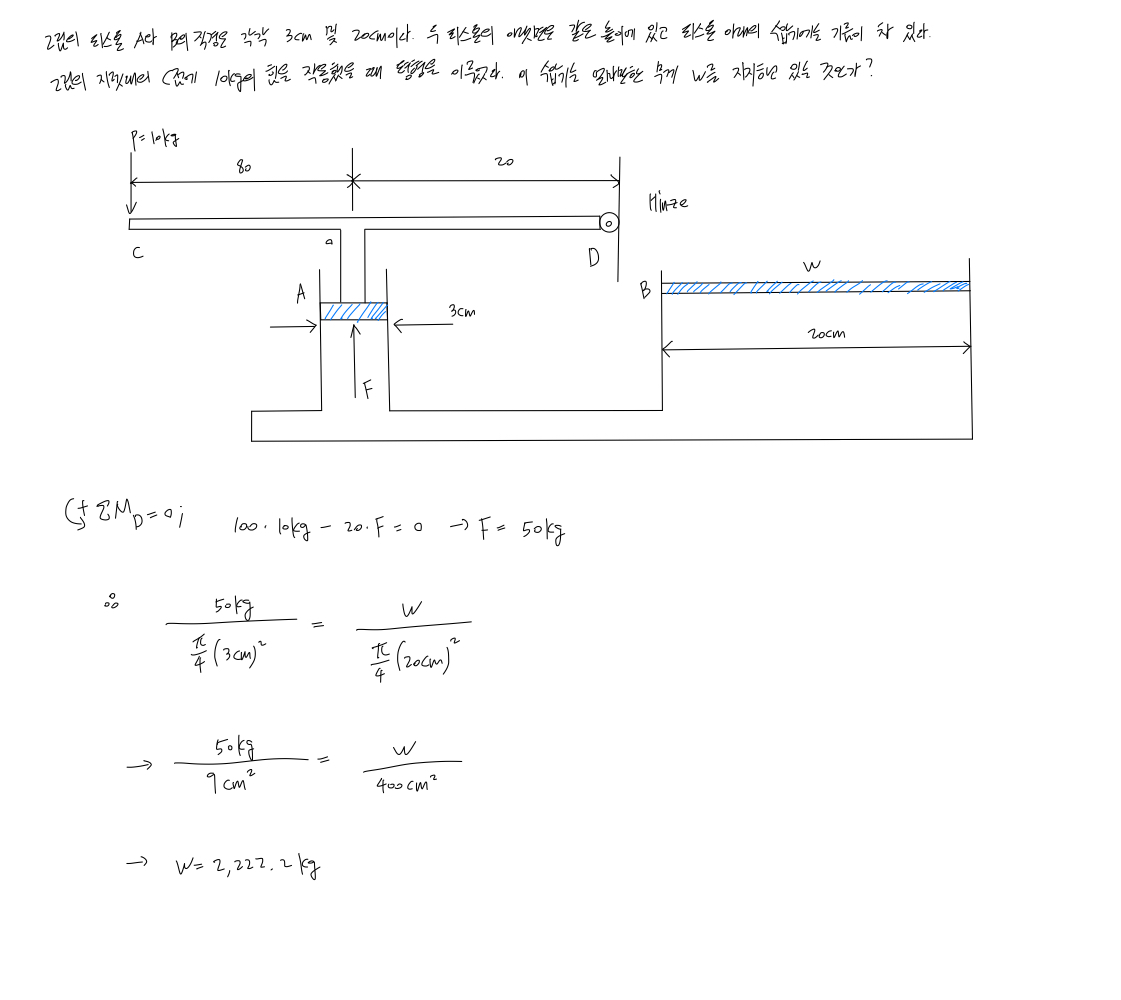 그림의 피스톤 A와 B의 직경은 각각 3cm 및 20cm이다. 두 피스톤의 아랫면은 같은 높이에 있고 피스톤 아래의 수압기에는 기름이 차 있다.
그림의 지렛대의 C점에 10kg의 힘을 작용했을 때 평형을 이루었다. 이 수압기는 얼마만한 무게 W를 지지하고 있는 것인가?
P=10kg
80
20
Hinze
C
a
D
A
3cm
F
B
W
20cm
ΣM_D=0;
100·10kg - 20·F = 0 → F = 50kg
∴ 50kg / (π/4 (3cm)²) = W / (π/4 (20cm)²)
→ 50kg / 9cm² = W / 400cm²
→ W= 2,222.2kg